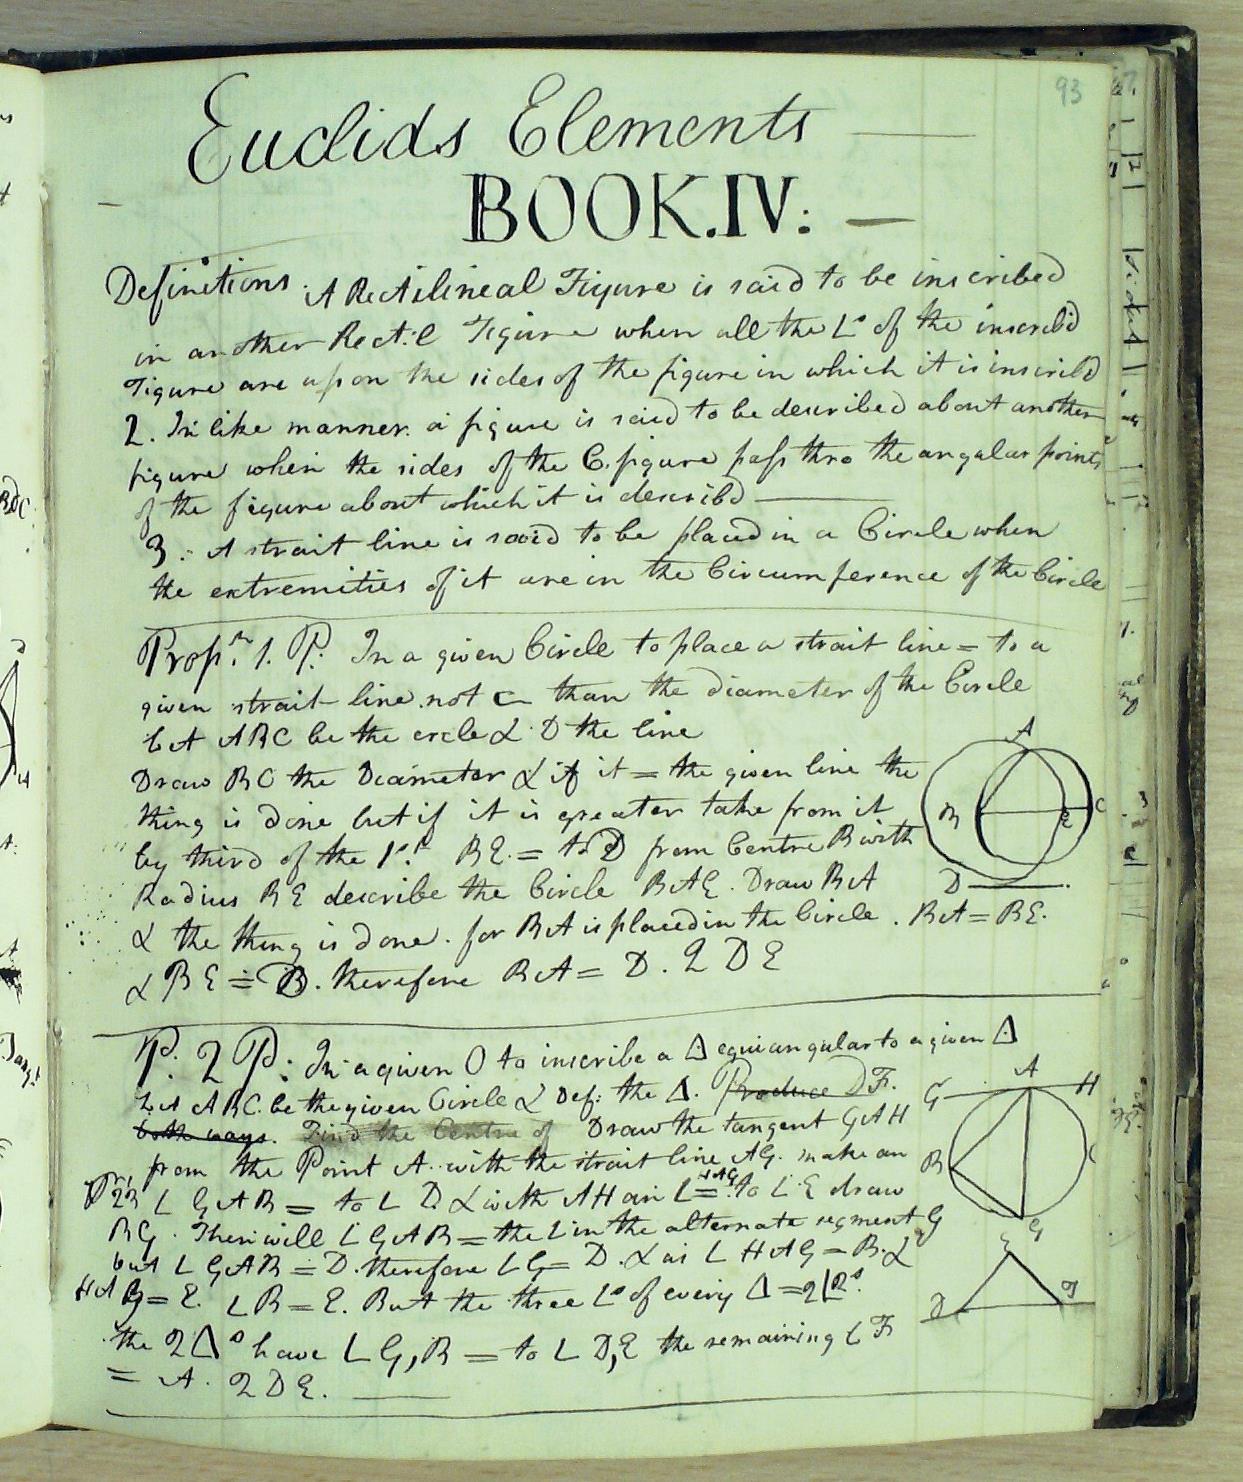 93
Euclids Elements
BOOK.IV:
Definitions. A Rectilineal Figure is said to be inscribed
in another Rect:l Figure when all the Ls of the inscrib'd
Figure are upon the sides of the figure in which it is inscrib'd
2. In like manner a figure is said to be described about another
figure when the sides of the C. figure pass thro the angular points
of the figure about which it is describ'd
3. A strait line is said to be placed in a Circle when
the extremities of it are in the Circumference of the Circle
Propn. 1. P: In a given Circle to place a strait line = to a
given strait line not ⊏ than the diameter of the Circle
Let ABC be the circle & D the line
Draw BC the Diameter & if it = the given line the
thing is done but if it is greater take from it
by third of the 1st BE = to D from Centre B with
Radius BE describe the Circle BAE. Draw BA
& the thing is done. for BA is placed in the Circle. BA = BE.
& BE = D. therefore BA = D. Q D E
A
B
E
C
D
P. 2 P: In a given O to inscribe a Δ equiangular to a given Δ
Let ABC be the given Circle & Def: the Δ. Produce DF.
both ways. Find the Centre of Draw the tangent GAH
from the Point A with the strait line AG. make an
L GAB = to L D & with AH an L = to L E draw
BG. Then will L GAB = the L in the alternate segment G
but L GAB = D. therefore L G = D. & as L HAG = B. &
HAG = E. L B = E. But the three Ls of every Δ = 2 LRs.
the 2 Δs have L G, B = to L D, E the remaining L F
= A. Q D E.
G
A
H
B
C
G
E
D
F